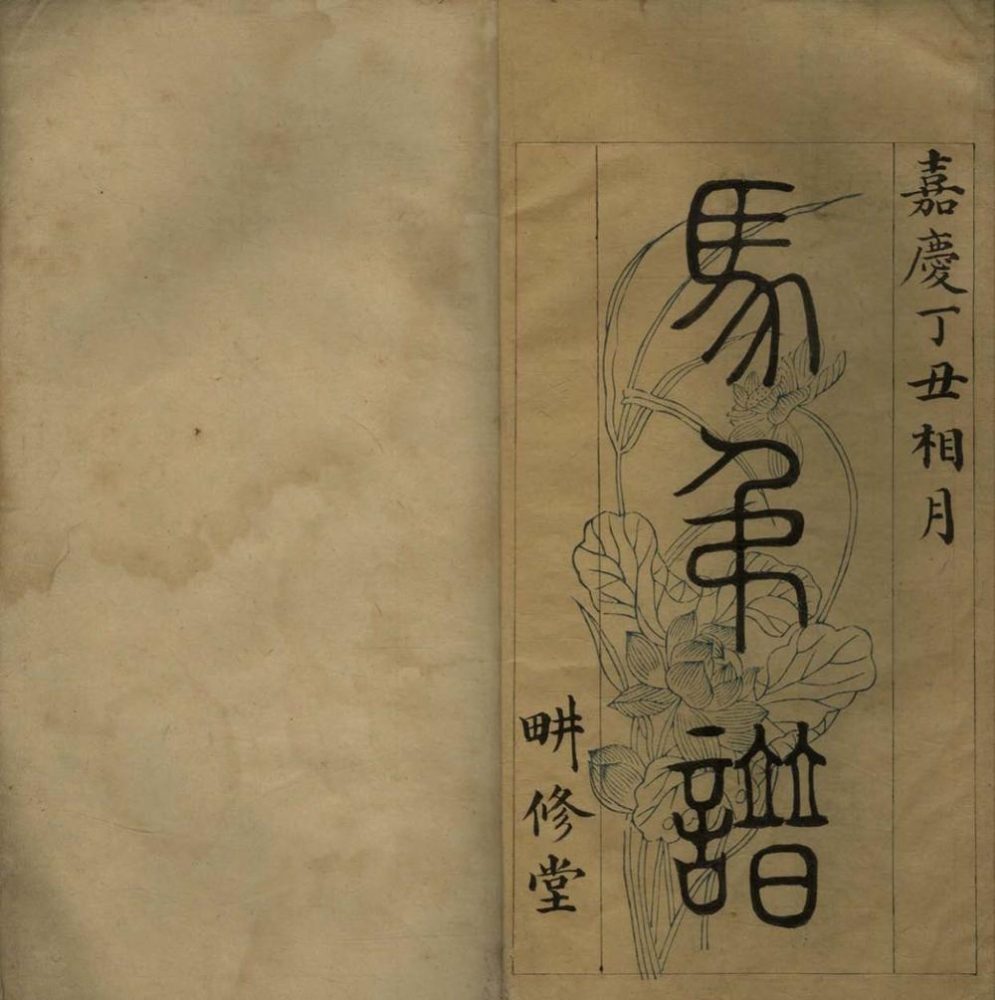 嘉慶丁丑相月
馬弔譜
畊修堂